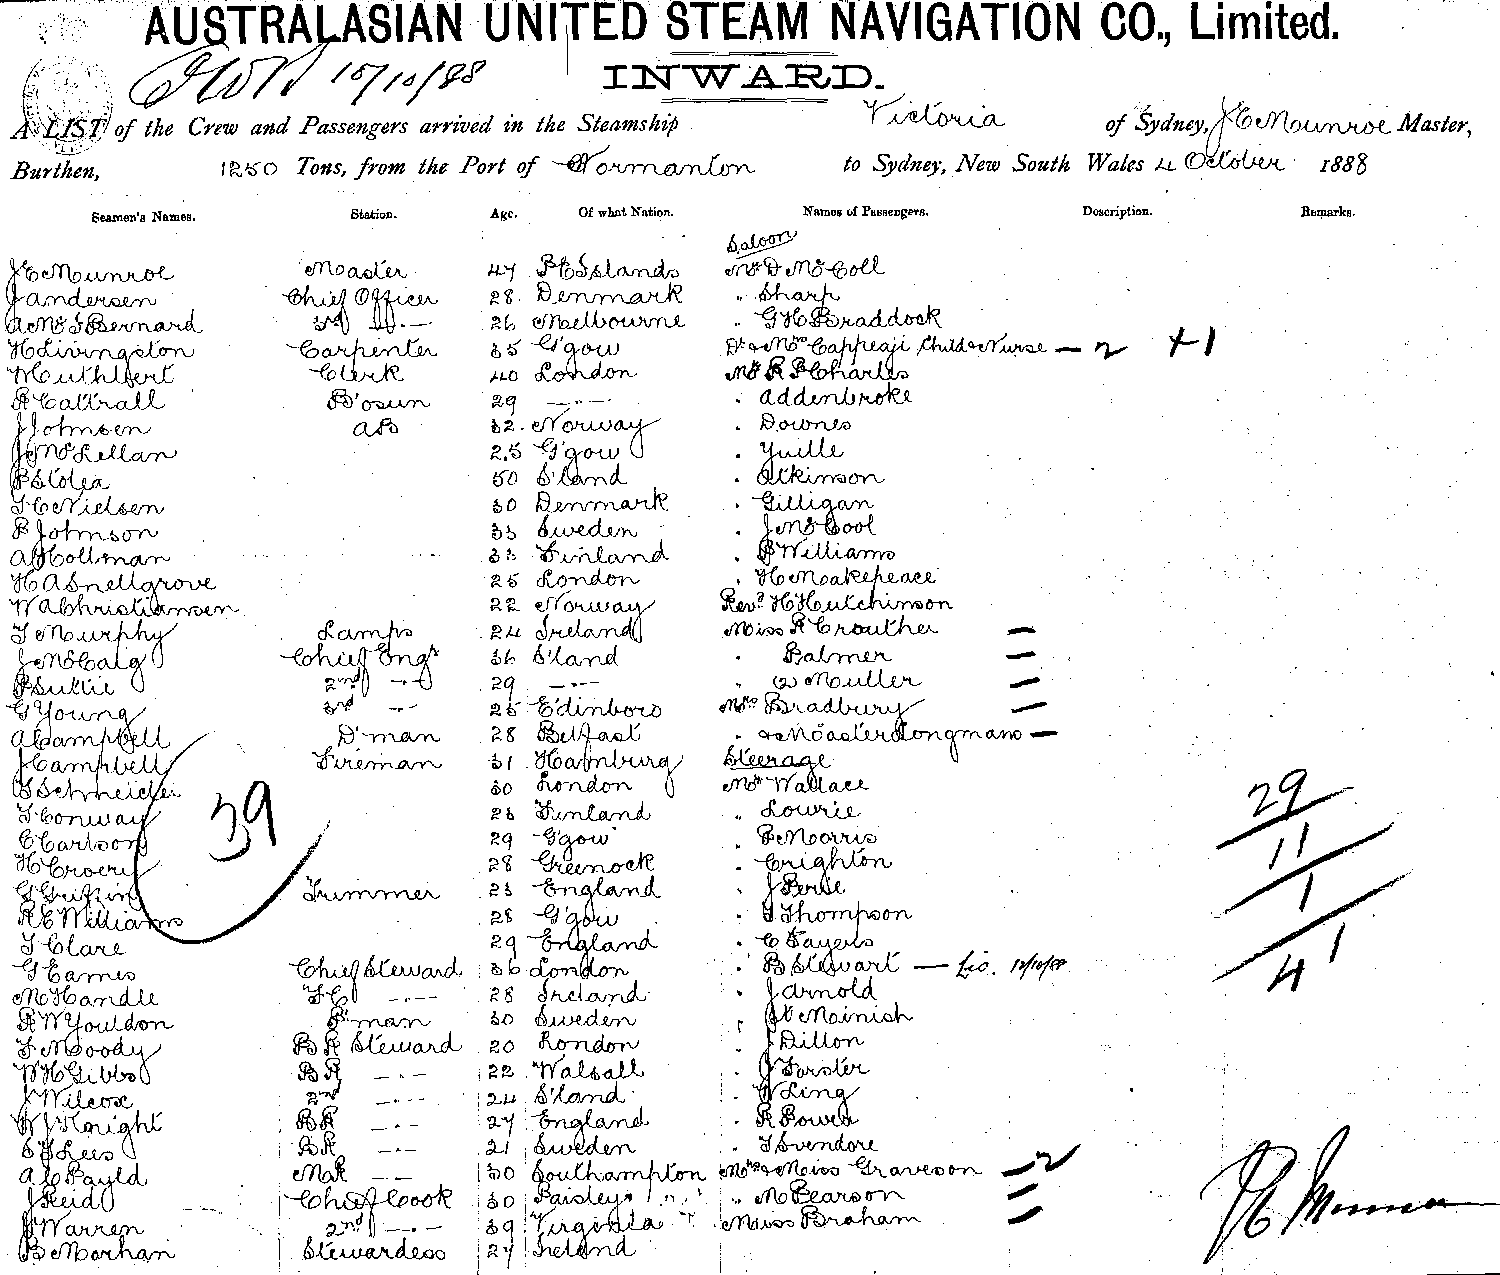 AUSTRALASIAN UNITED STEAM NAVIGATION CO., Limited.
15/10/88 INWARD.
A LIST of the Crew and Passengers arrived in the Steamship Victoria of Sydney, J C Munroe Master,
Burthen, 1250 Tons, from the Port of Normanton to Sydney, New South Wales 4 October 1888
Seamen's Names. Station. Age. Of what Nation. Names of Passengers. Description. Remarks.
Saloon
J C Munroe Master 47 Islands Mr D McColl
J Andersen Chief Officer 28 Denmark " Sharp
A McI Bernard 3rd 26 Melbourne " G H Braddock
H Livingston Carpenter 35 G'gow Dr & Mrs Cappeaji Child & Nurse — 2 +1
W Cuthbert Clerk 40 London Mr R P Charles
R Cattrall B'osun 29 —"— " Addenbroke
J Johnsen AB 32 Norway " Downes
J McLellan 25 G'gow " Yuille
P Stolea 50 S'land " Atkinson
J C Nielsen 30 Denmark " Gilligan
B Johnson 33 Sweden " J McCool
A Hollman 33 Finland " P Williams
H A Snellgrove 25 London " H Makepeace
W A Christiansen 22 Norway Revd H Hutchinson
T Murphy Lamps 24 Ireland Miss R Crouther —
J McCaig Chief Engr 36 S'land " Balmer —
P Suttie 2nd —"— 29 —"— " (2) Muller —
G Young 3rd —"— 25 Edinboro Mrs Bradbury —
A Campbell D'man 28 Belfast " & Master Longmans —
J Campbell Fireman 31 Hamburg Steerage
Schneider 30 London Mr Wallace
T Conway 28 Finland " Lowrie
C Carlson 29 G'gow " P Morris
H Crocri 28 Greenock " Crighton
G Griffin Trimmer 23 England " J Perie
R E Williams 28 G'gow " T Thompson
T Clare 29 England " C Sayers
G Eames Chief Steward 36 London " B Stewart — 12/10/88
M Handle F C —"— 28 Ireland " J Arnold
R W Youldon P'man 30 Sweden " McMinish
F Moody BR Steward 20 London " J Dillon
W H Gibbs BR —"— 22 Walsall " J Forster
J Wilcox 2nd —"— 24 S'land " W Ling
W J Knight BR —"— 27 England " R Powra
S J Lees BR —"— 21 Sweden " T Svendore
A C Payld MR —"— 30 Southampton Mrs & Miss Graveson — 2
J Reid Chief Cook 30 Paisley " M Pearson —
J Warren 2nd —"— 39 Virginia Miss Braham —
B Morhan Stewardess 27 Ireland
39
29
11
1
1
41
J C Munroe